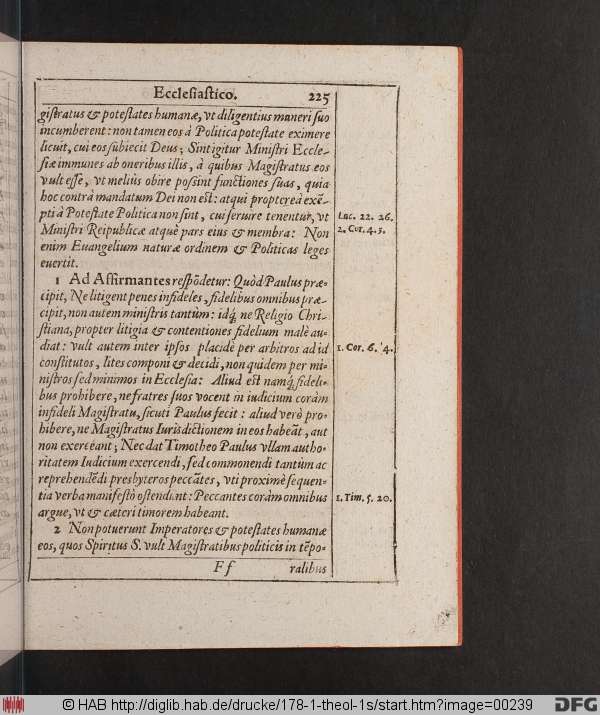 Ecclesiastico. 225
gistratus & potestates humanæ, vt diligentius muneri suo
incumberent: non tamen eos à Politica potestate eximere
licuit, cui eos subiecit Deus; Sint igitur Ministri Eccle-
siæ immunes ab oneribus illis, à quibus Magistratus eos
vult esse, vt meliùs obire possint functiones suas, quia
hoc contrà mandatum Dei non est: atqui proptereà exē-
pti à Potestate Politica non sint, cui seruire tenentur, vt
Luc. 22. 26.
Ministri Reipublicæ atquè pars eius & membra: Non
2. Cor. 4. 5.
enim Euangelium naturæ ordinem & Politicas leges
euertit.
1 Ad Affirmantes respōdetur: Quòd Paulus præ-
cipit, Ne litigent penes infideles, fidelibus omnibus præ-
cipit, non autem ministris tantùm: idq́; ne Religio Chri-
stiana, propter litigia & contentiones fidelium malè au-
diat: vult autem inter ipsos placidè per arbitros ad id
1. Cor. 6. 4.
constitutos, lites componi & decidi, non quidem per mi-
nistros sed minimos in Ecclesia: Aliud est namq́; fideli-
bus prohibere, ne fratres suos vocent in iudicium coràm
infideli Magistratu, sicuti Paulus fecit: aliud verò pro-
hibere, ne Magistratus Iurisdictionem in eos habeāt, aut
non exerceant; Nec dat Timotheo Paulus vllam autho-
ritatem Iudicium exercendi, sed commonendi tantùm ac
reprehendēdi presbyteros peccātes, vti proximè sequen-
tia verba manifestò ostendunt: Peccantes coràm omnibus
1. Tim. 5. 20.
argue, vt & cæteri timorem habeant.
2 Non potuerunt Imperatores & potestates humanæ
eos, quos Spiritus S. vult Magistratibus politicis in tēpo-
F f ralibus
© HAB http://diglib.hab.de/drucke/178-1-theol-1s/start.htm?image=00239
DFG